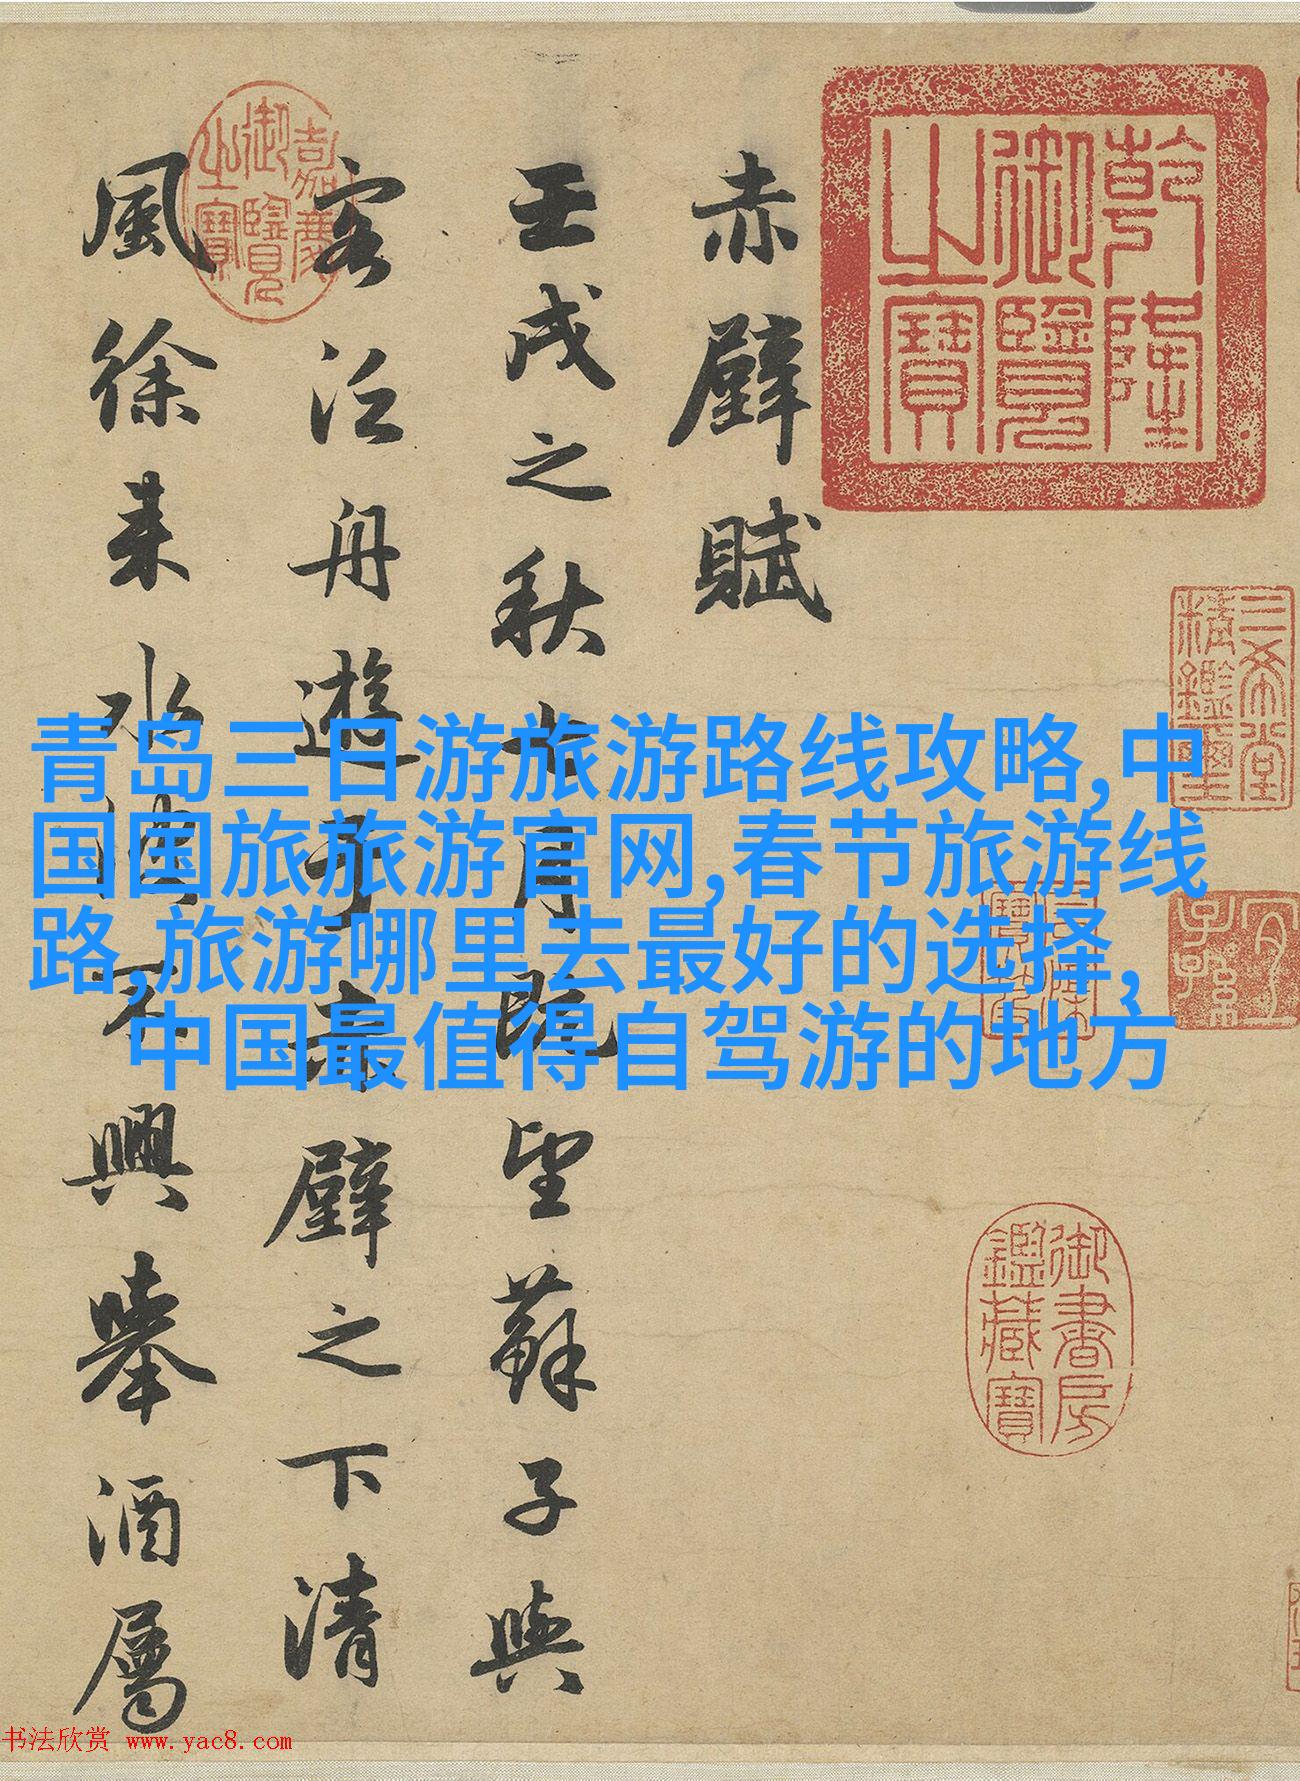 乾隆御覽之寶
三希堂精鑑璽
宜子孫
御書房鑑藏寶
赤壁賦
壬戌之秋七月既望蘇子與
客泛舟遊于赤壁之下清
風徐来水波不興舉酒屬
嘉慶御覽之寶
青岛三日游旅游路线攻略,中
国国旅旅游官网,春节旅游线
路,旅游哪里去最好的选择,
中国最值得自驾游的地方
书法欣赏 www.yac8.com